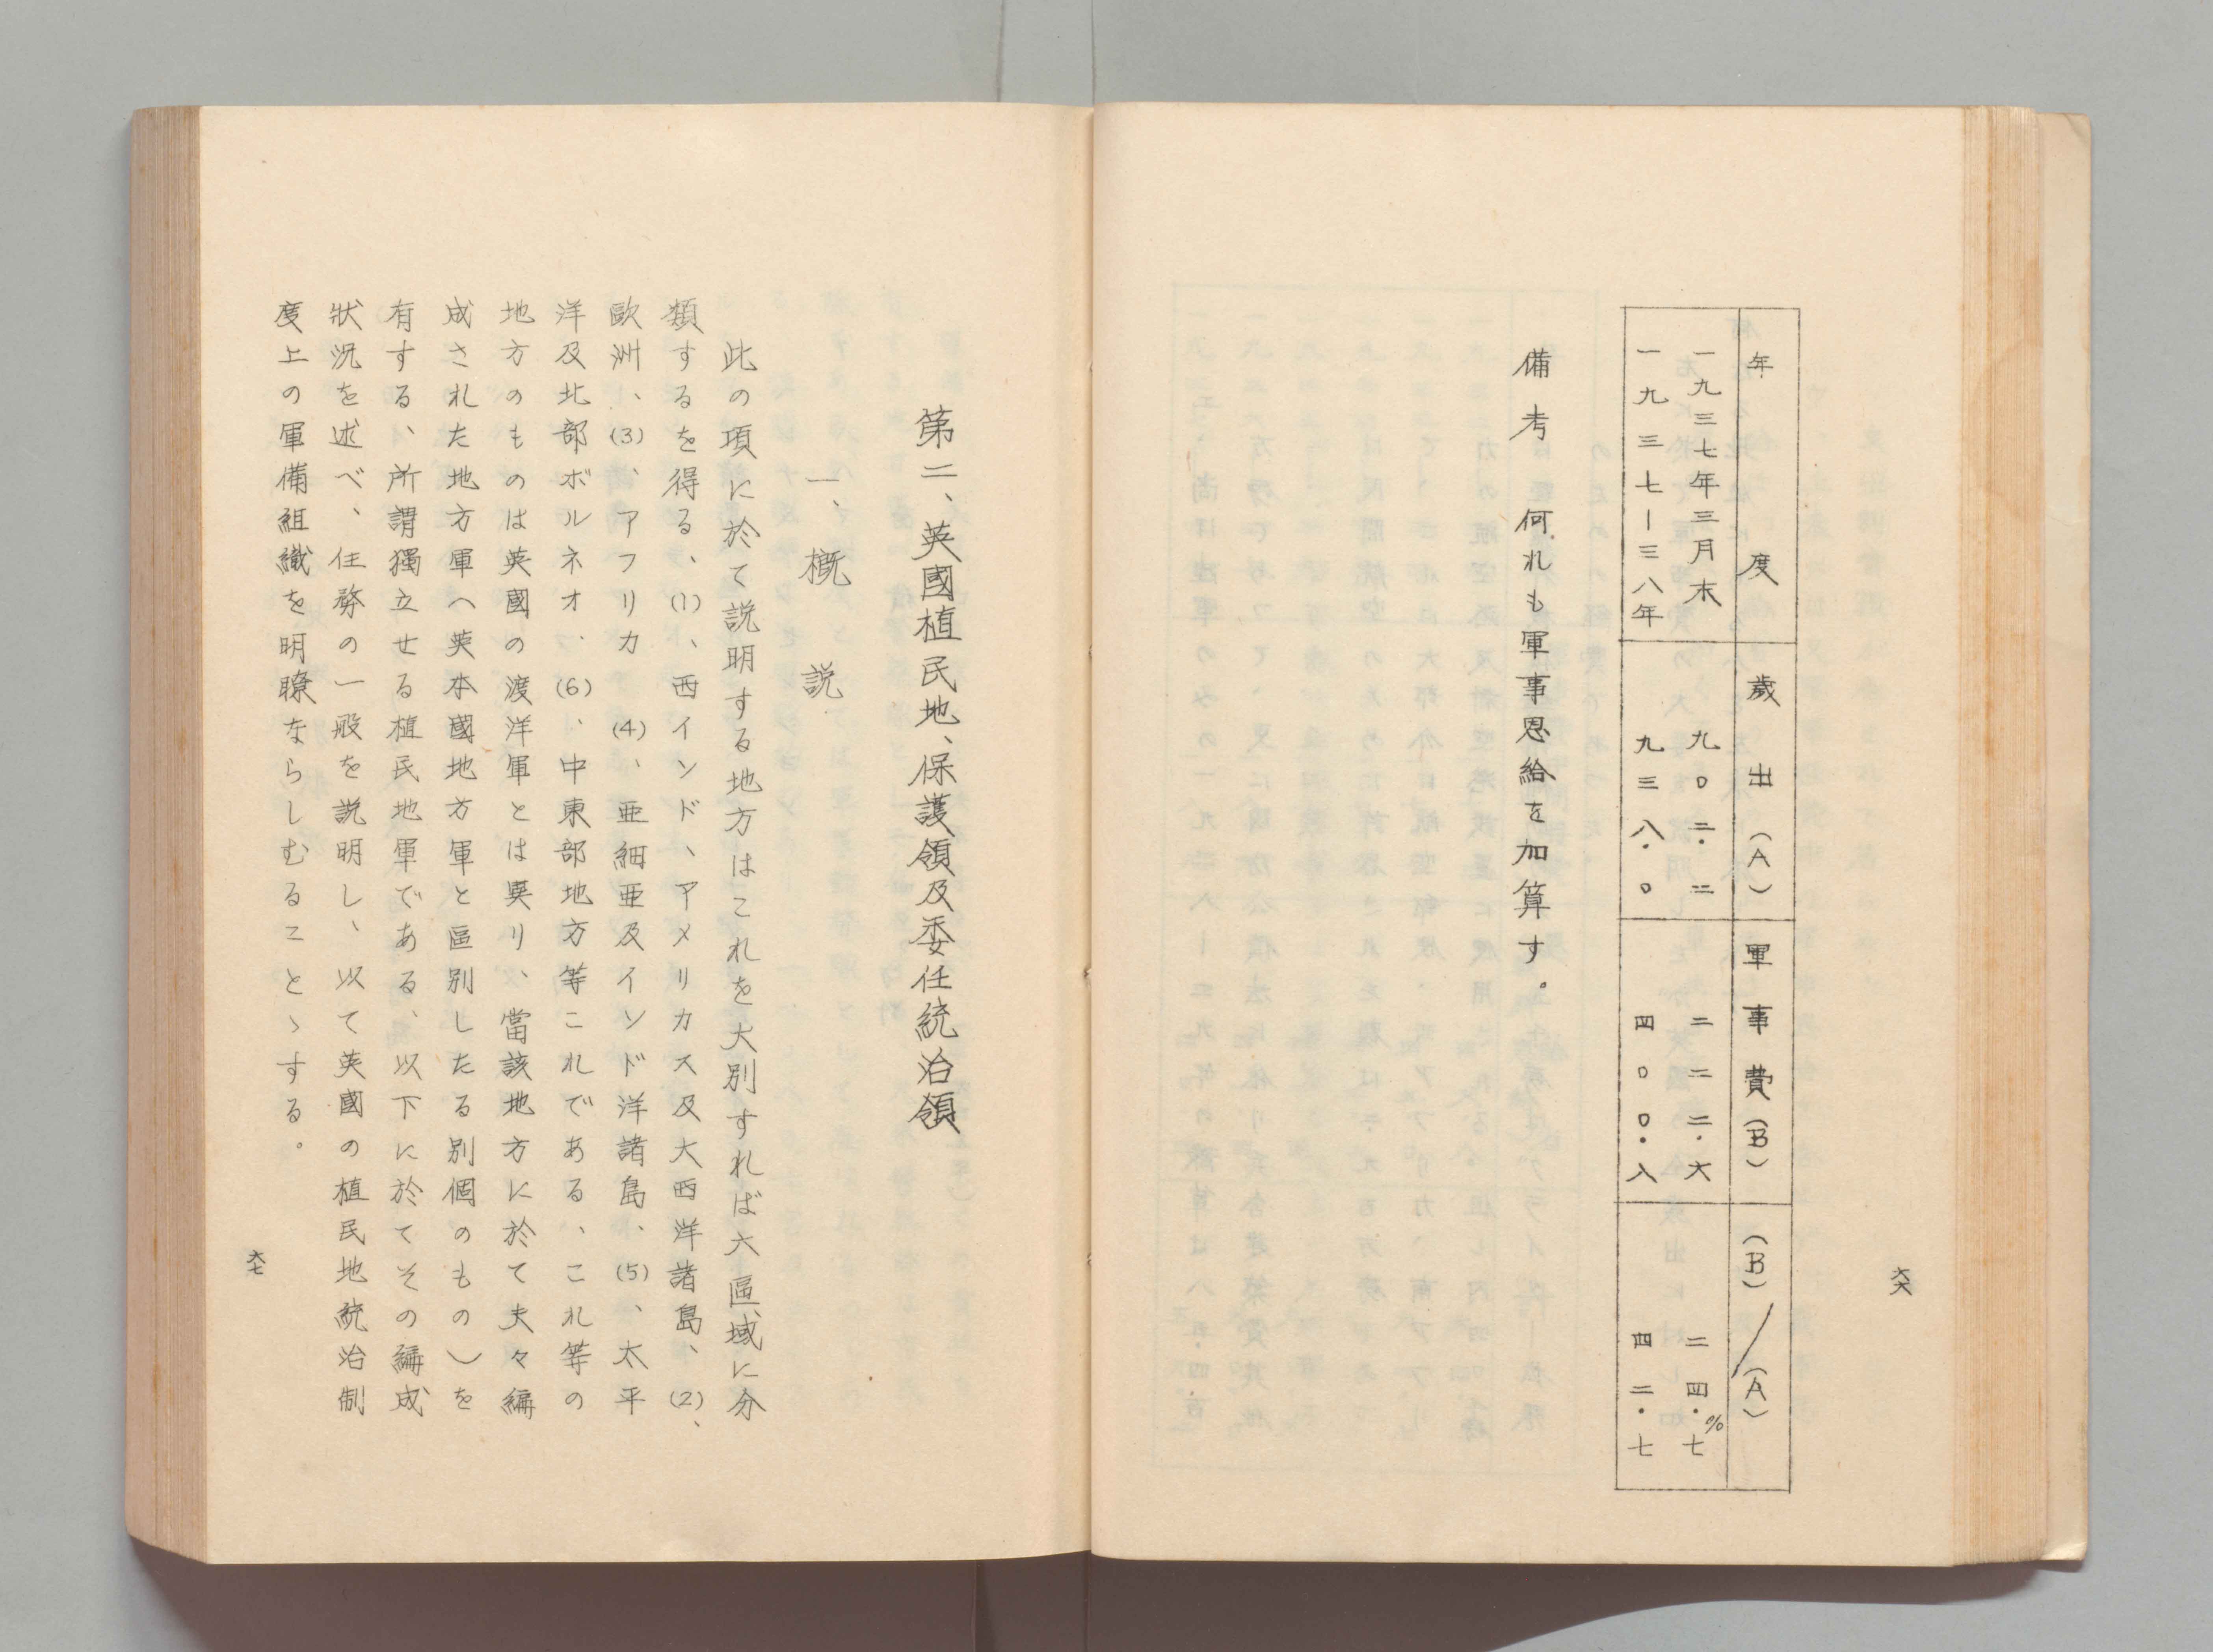 六六
年度 歳出(A) 軍事費(B) (B)/(A)
一九三七年三月末 九〇二.二 二二二.六 二四.七%
一九三七―三八年 九三八.〇 四〇〇.八 四二.七
備考 何れも軍事恩給を加算す。
第二、英國植民地、保護領及委任統治領
一、概説
此の項に於て説明する地方はこれを大別すれば六區域に分
類するを得る、(1)、西インド、アメリカス及大西洋諸島、(2)、
歐洲、(3)、アフリカ (4)、亜細亜及インド洋諸島、(5)、太平
洋及北部ボルネオ、(6)、中東部地方等これである、これ等の
地方のものは英國の渡洋軍とは異り、當該地方に於て夫々編
成された地方軍へ英本國地方軍と區別したる別個のもの)を
有する、所謂獨立せる植民地軍である、以下に於てその編成
狀況を述べ、任務の一般を説明し、以て英國の植民地統治制
度上の軍備組織を明瞭ならしむることゝする。
六七